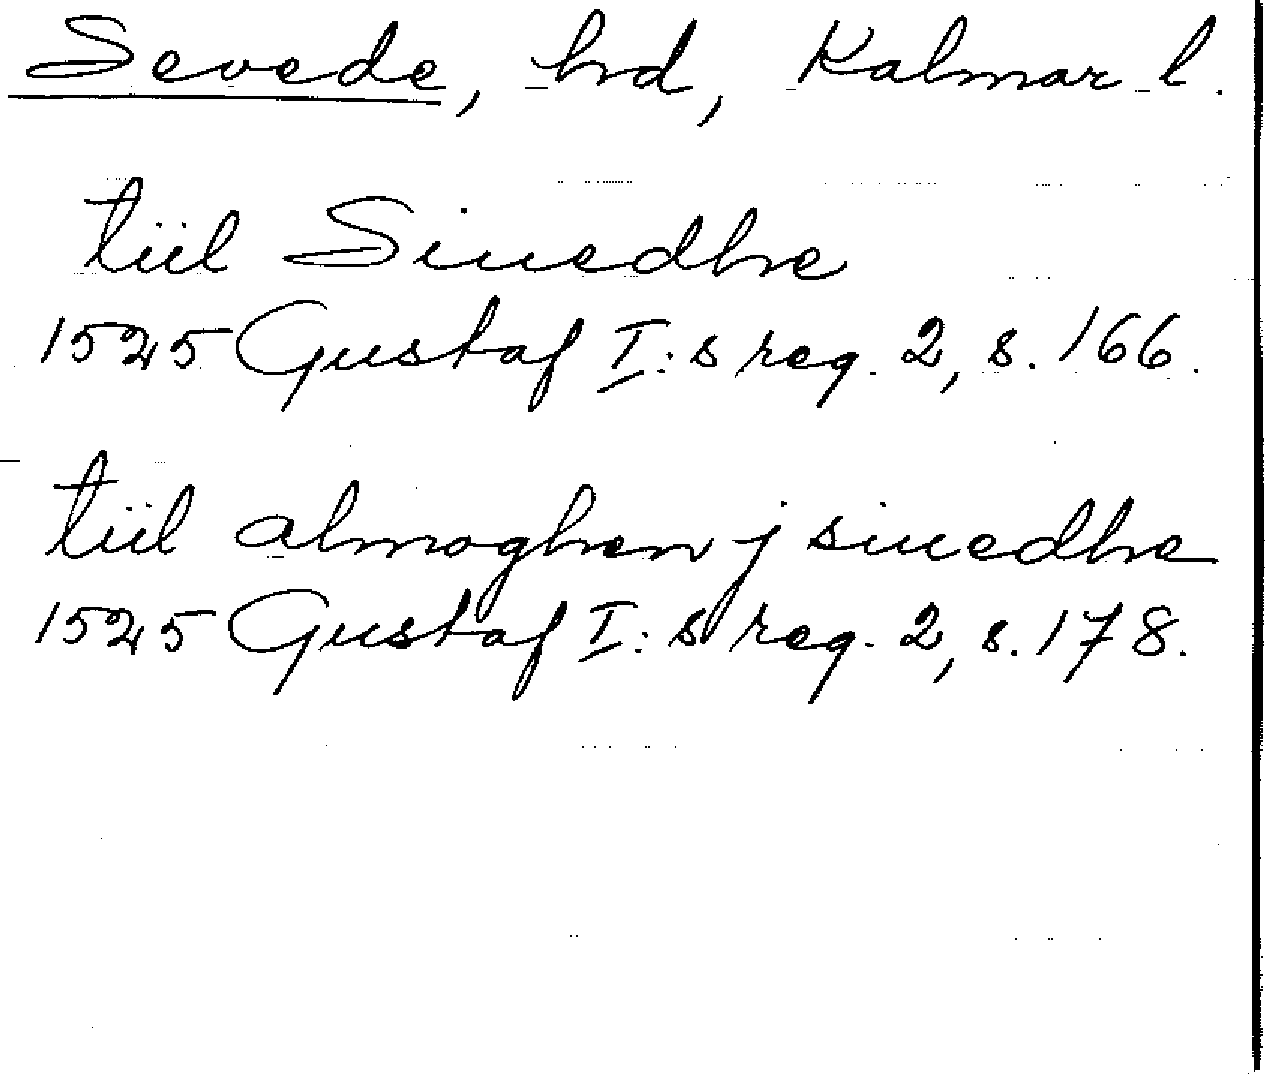 Sevede, hd, Kalmar l.
tiil Siuedhe
1525 Gustaf I:s reg. 2, s. 166.
tiil almoghen j siuedhe
1525 Gustaf I:s reg. 2, s. 178.